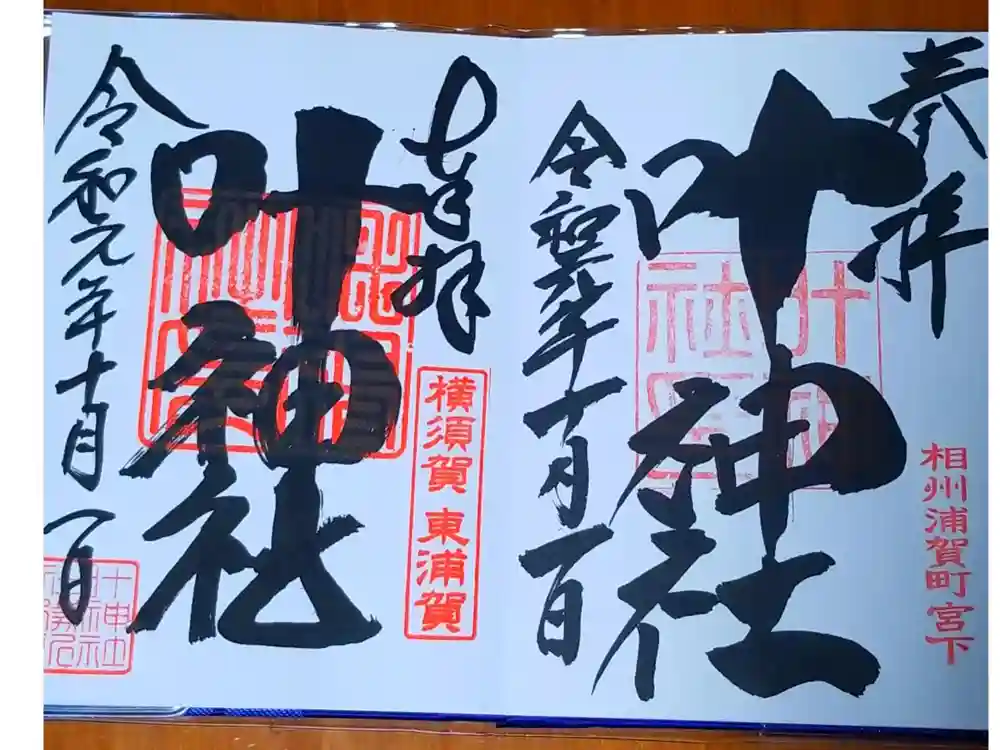 奉拝
相州浦賀町宮下
叶神社
叶神社
令和元年十月一日
奉拝
横須賀 東浦賀
叶神社
令和元年十月一日